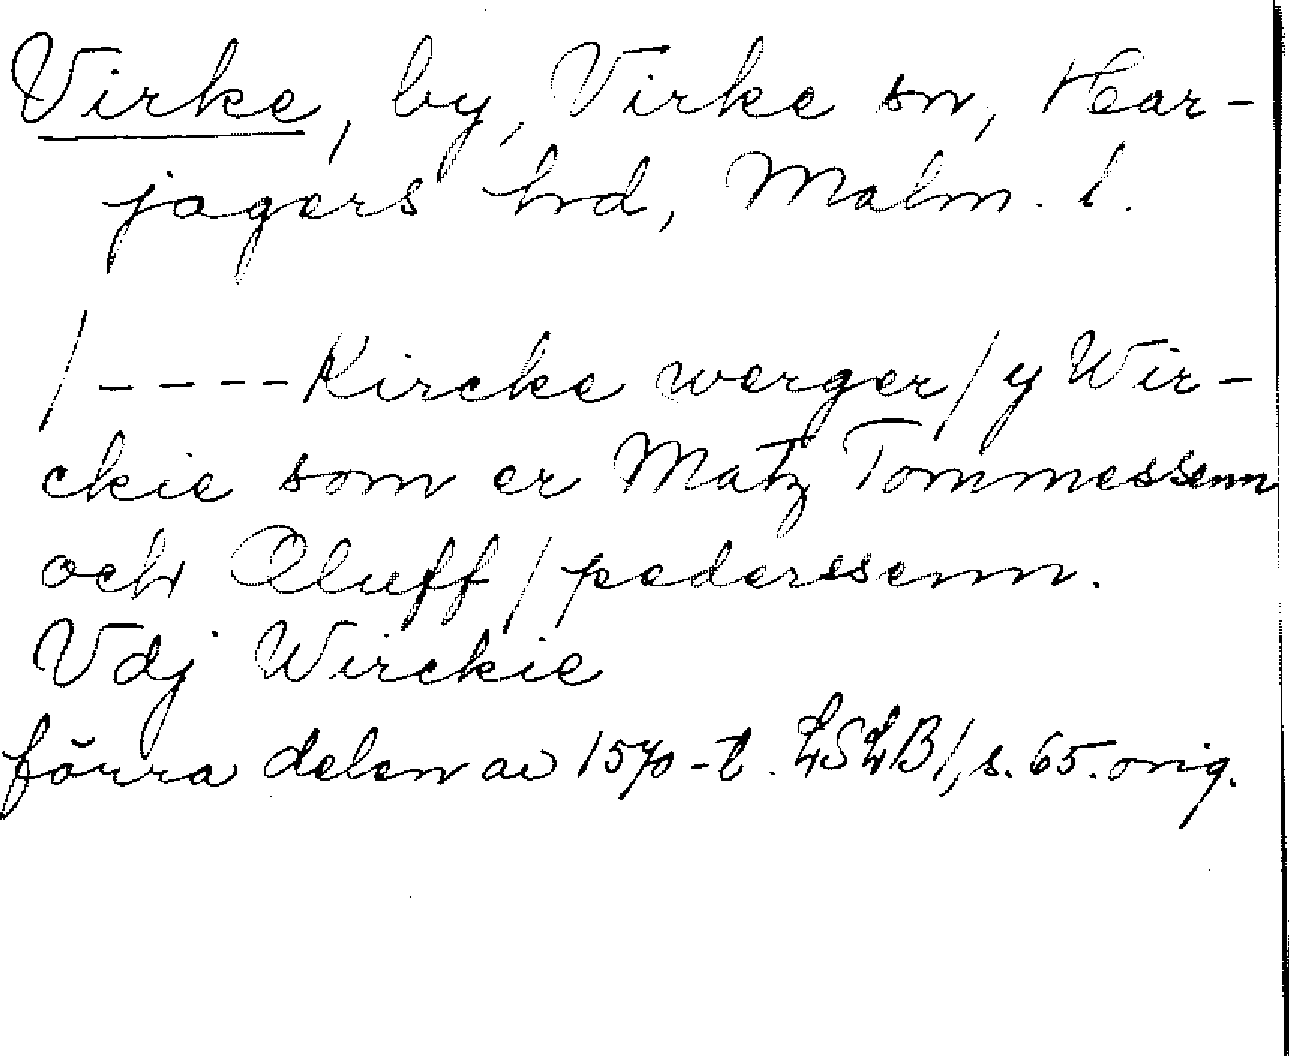 Virke, by, Virke sn, Har-
jagers hrd, Malm. l.
/----Kircke werger/y Wir-
ckie som er Matz Tommessenn
och Oluff/pederssenn.
Vdj Wirckie
förra delen av 1570-t. LSLB1, s. 65. orig.